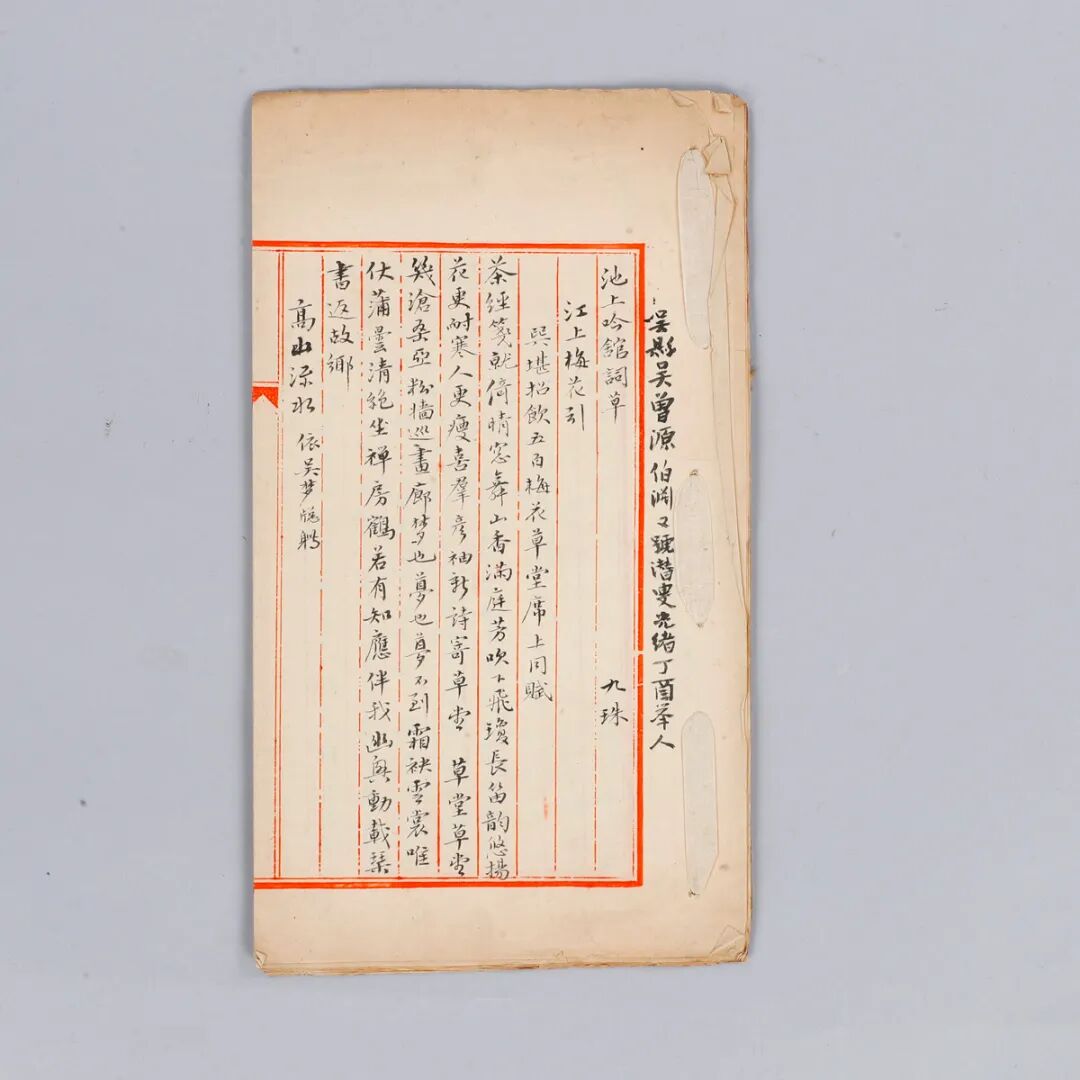 吳縣吳曾源伯淵又號潛叟光緒丁酉舉人
池上吟館詞草 九珠
江上梅花引
巽堪招飲五百梅花草堂席上同賦
茶經箋就倚晴窓舞山香滿庭芳吹下飛瓊長笛韵悠揚
花更耐寒人更瘦喜羣彦袖新詩寄草堂 草堂草堂
幾滄桑亞粉墻巡畫廊夢也夢也夢不到霜袂雲裳唯
伏蒲曇清絶坐禅房鶴若有知應伴我幽興動載琹
書返故鄉
高山流水 依吳夢窓軆